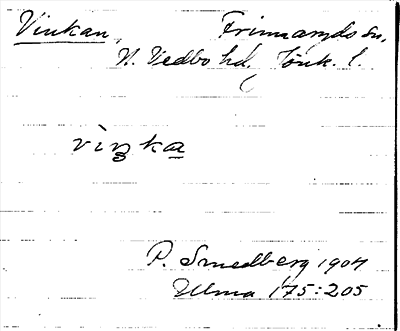 Vinkan, Frinnaryds sn,
N. Vedbo hd, Jönk. l.
vìŋka
P. Smedberg 1904
Ulma 175:205